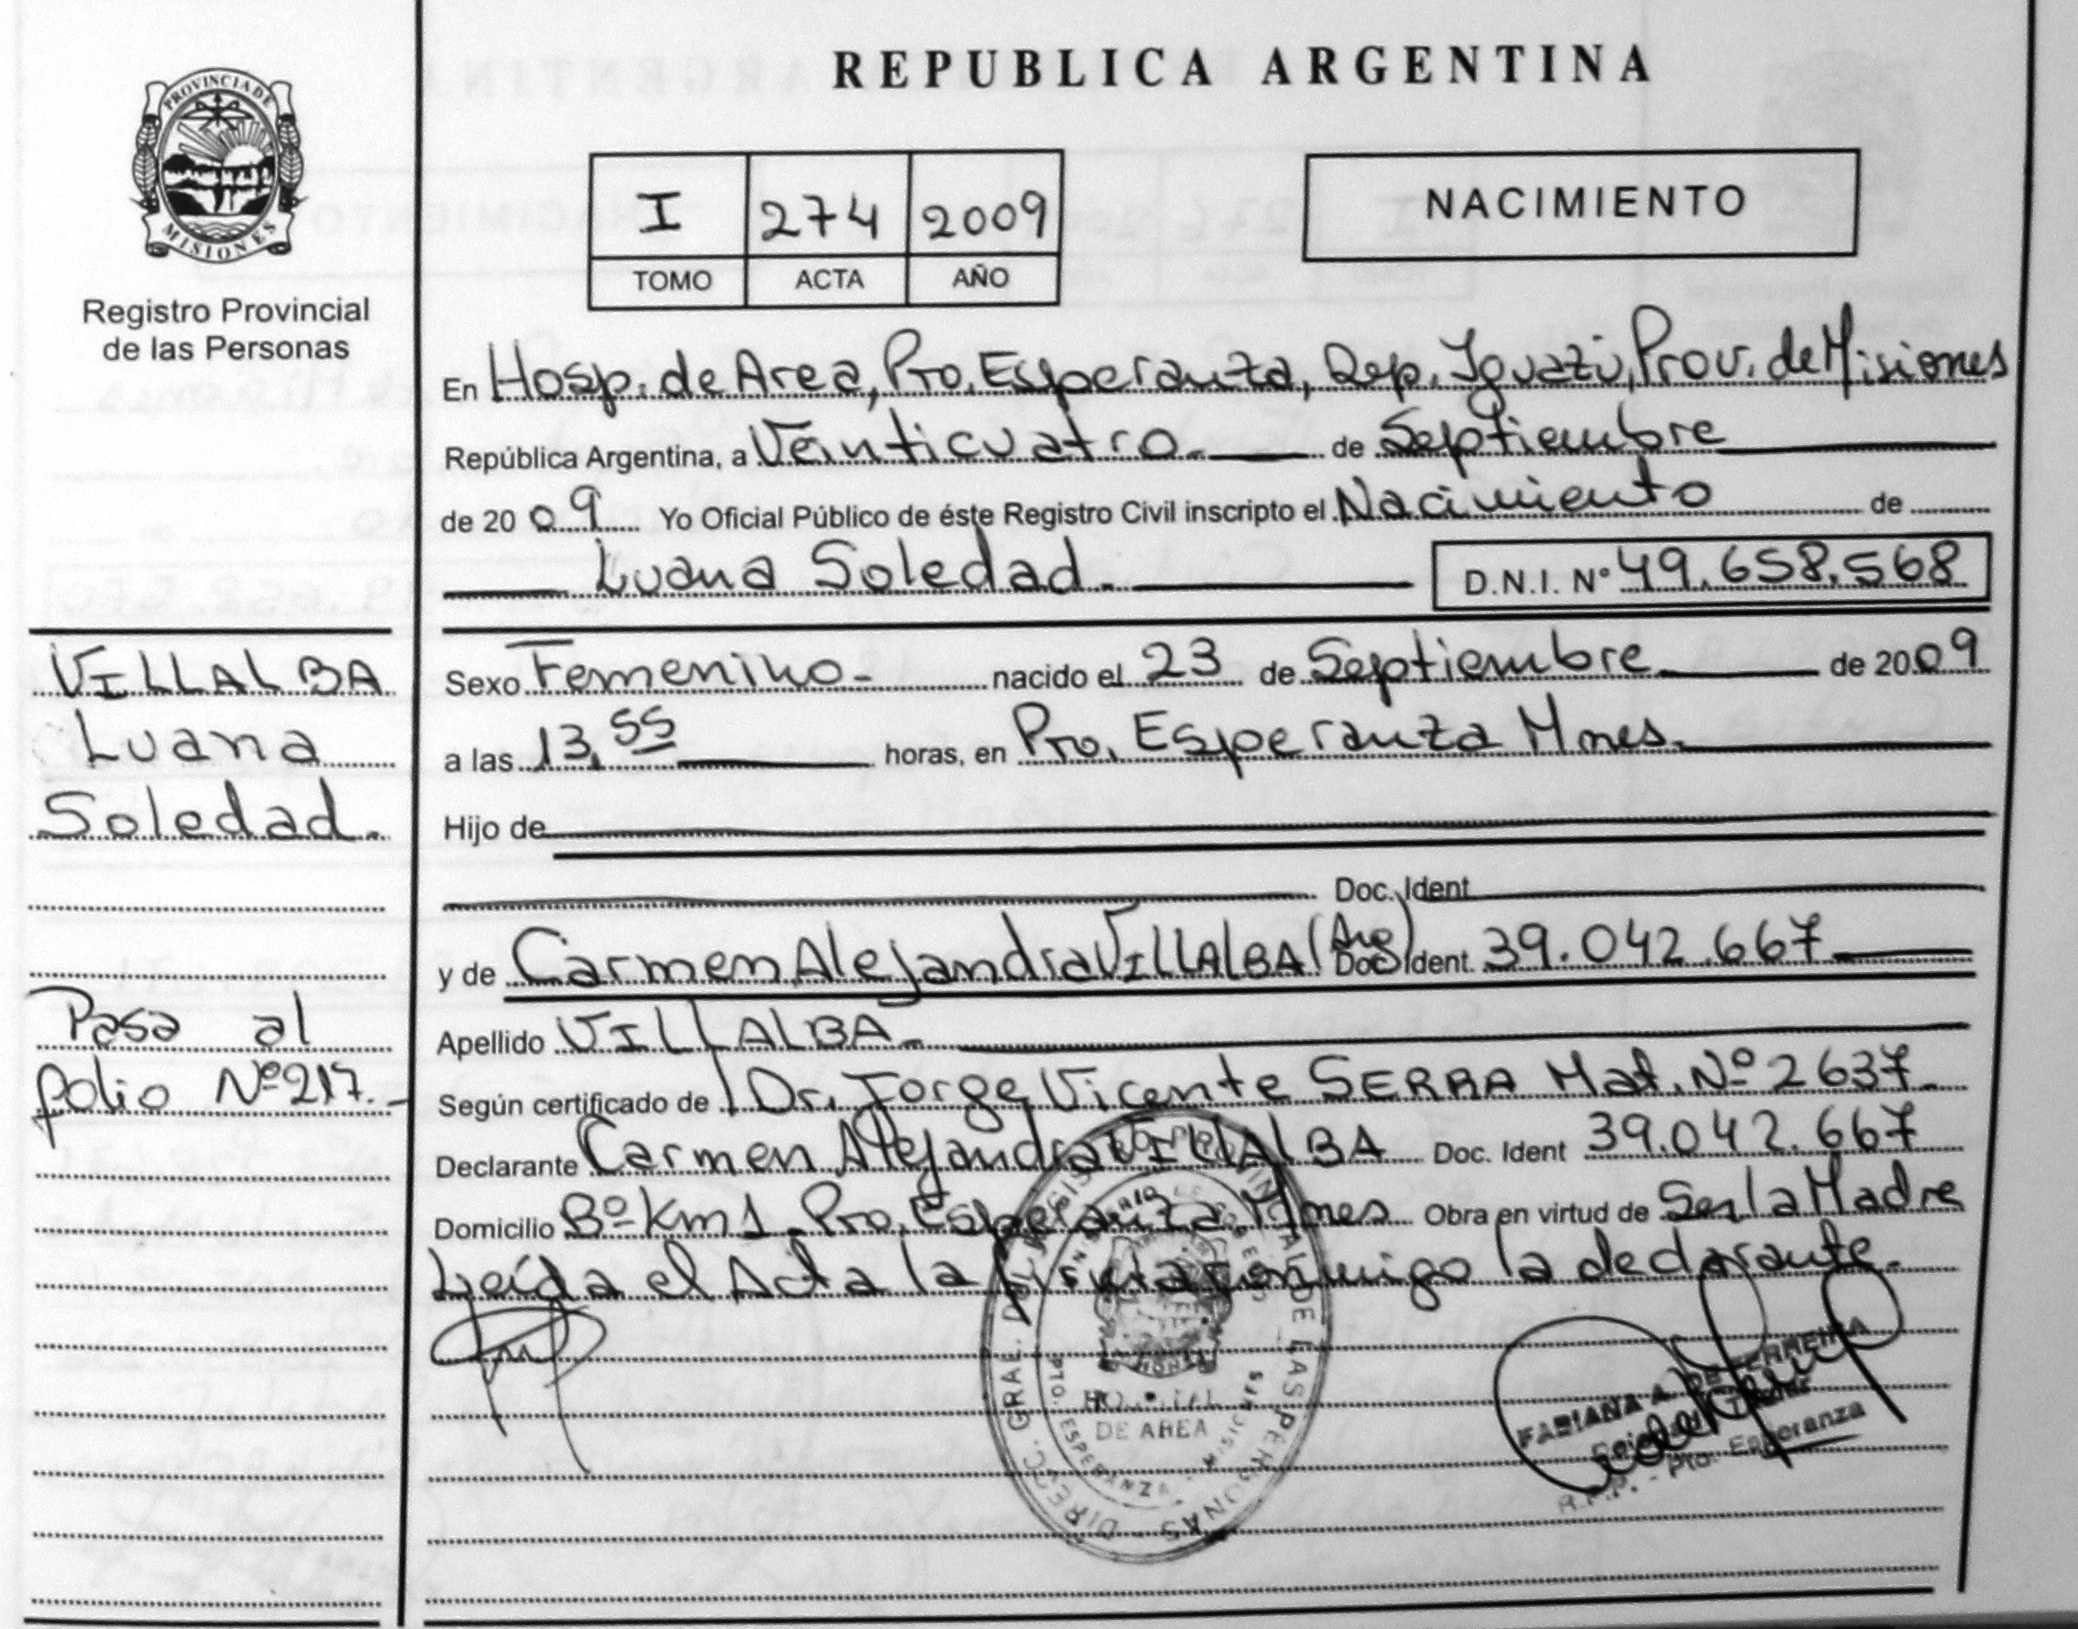 REPUBLICA ARGENTINA
PROVINCIA DE
MISIONES
Registro Provincial
de las Personas
I 274 2009
TOMO ACTA AÑO
NACIMIENTO
En Hosp. de Area, Pto. Esperanza, Dep. Iguazú, Prov. de Misiones
República Argentina, a Veinticuatro. de Septiembre
de 20 09 Yo Oficial Público de éste Registro Civil inscripto el Nacimiento de
Luana Soledad. D.N.I. Nº 49.658.568
VILLALBA
Luana
Soledad.
Pasa al
folio Nº 217.-
Sexo Femenino- nacido el 23 de Septiembre de 20 09
a las 13,55 horas, en Pto. Esperanza Mnes.
Hijo de
Doc. Ident
y de Carmen Alejandra VILLALBA (Arg) Doc. Ident. 39.042.667
Apellido VILLALBA-
Según certificado de Dr. Jorge Vicente SERRA Mat. Nº 2637-
Declarante Carmen Alejandra VILLALBA Doc. Ident 39.042.667
Domicilio Bº Km 1 - Pto. Esperanza Mnes Obra en virtud de Ser la Madre
Leída el Acta la firma conmigo la declarante.
DIREC. GRAL. DEL REGISTRO PROVINCIAL DE LAS PERSONAS
HOSPITAL
DE AREA
PTO. ESPERANZA - MISIONES
FABIANA A. DE FERREIRA
R.P.P. - Pto. Esperanza